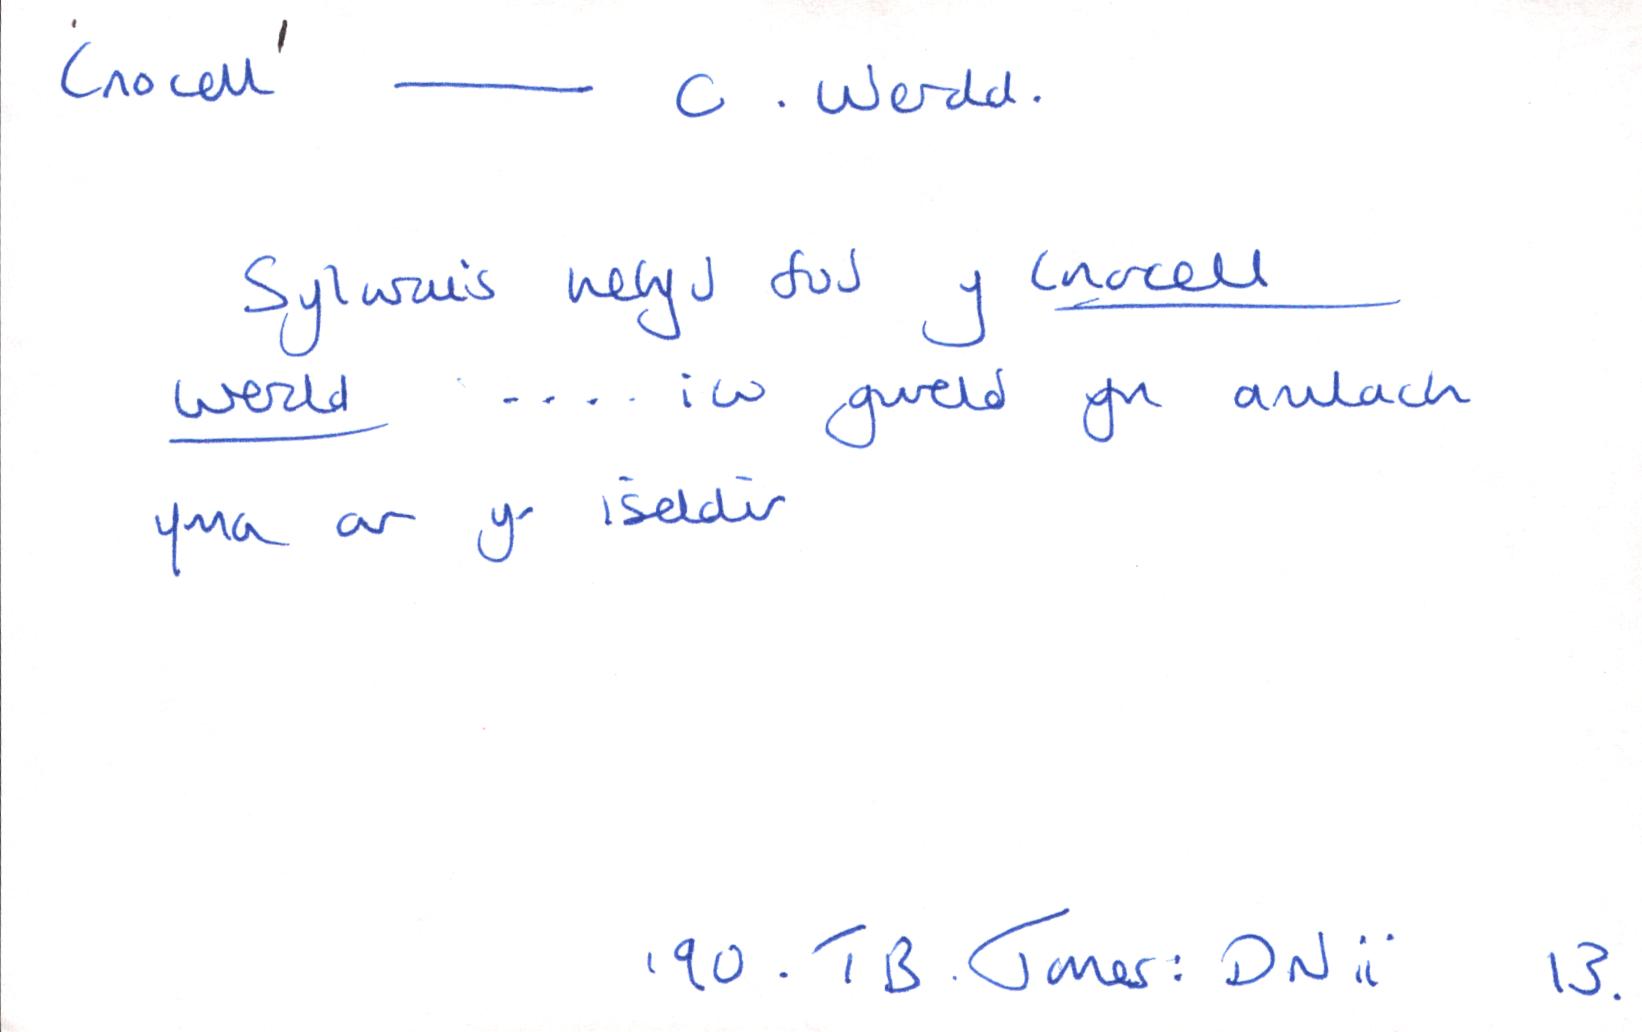 'Cnocell' — C. Werdd.
Sylwais hefyd fod y Cnocell
Werdd .... iw gweld yn amlach
yma ar yr iseldir
190. T B. Jones: DN ii 13.